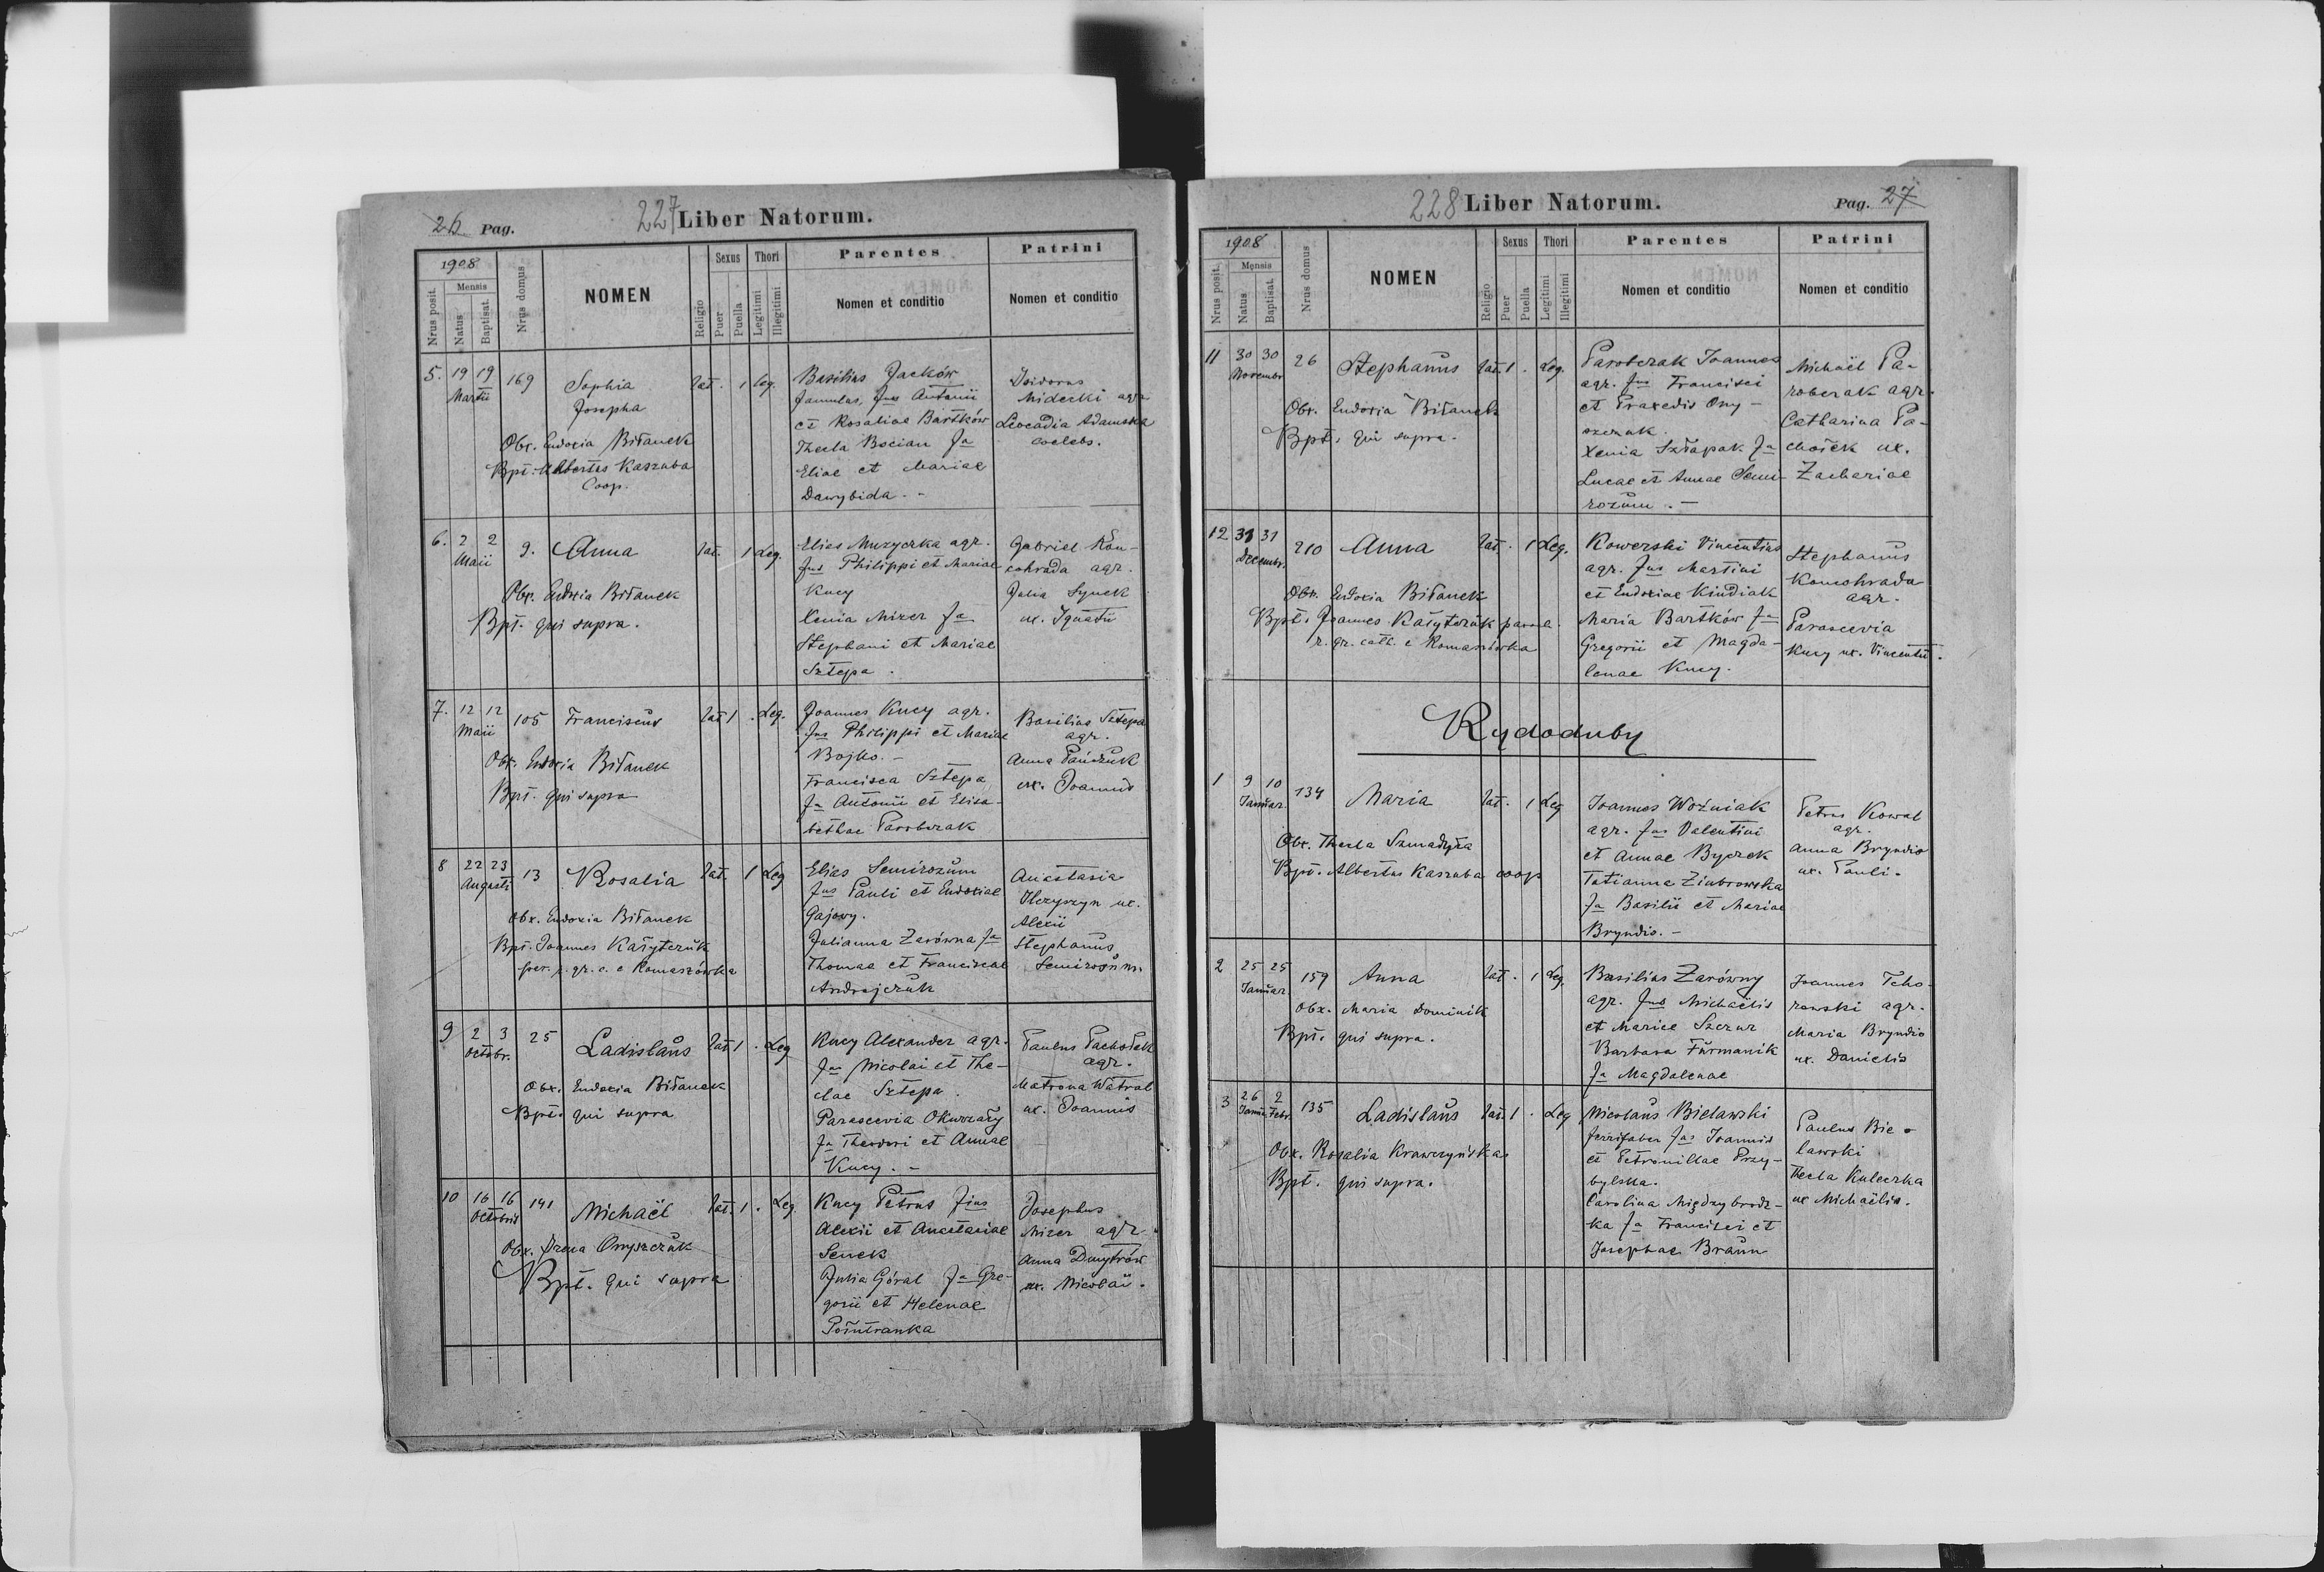 26 Pag.
227 Liber Natorum.
1908
Nrus posit.
Mensis
Natus
Baptisat.
Nrus domus
NOMEN
Religio
Sexus
Puer
Puella
Thori
Legitimi
Illegitimi
Parentes
Nomen et conditio
Patrini
Nomen et conditio
5. 19 19 169
Martii
Sophia
Josepha
Obx. Eudoxia Biłanek
Bpt. Albertus Kaszuba
Coop.
lat. . 1 leg.
Basilius Jacków
famulus, fius Antonii
et Rosaliae Bartków
Thecla Bocian fa
Eliae et Mariae
Dawybida. -
Isidorus
Midecki agr
Leocadia Adamska
coelebs.
6. 2 2 9. Anna
Maii
Obx. Eudoxia Biłanek
Bpt. qui supra.
lat. 1 Leg.
Elias Muzyczka agr.
fius Philippi et Mariae
Kucy
Xenia Mizer fa
Stephani et Mariae
Sztepa.
Gabriel Kon-
cohrada agr.
Julia Synek
ux. Ignatii
7. 12 12 105 Franciscus
Maii
Obx. Eudoxia Biłanek
Bpt. qui supra
lat 1 . Leg.
Joannes Kucy agr.
fus Philippi et Mariae
Bojko. -
Francisca Sztepa
fa Antonii et Elisa-
bethae Parobczak
Basilius Sztepa
agr.
Anna
ux. Joannis
8 22 23 13 Rosalia
Augusti
Obx. Eudoxia Biłanek
Bpt. Joannes Kałytczuk
par. r. gr. c. e Romaszówka
lat. 1 Leg
Elias Semirozum
fus Pauli et Eudoxiae
Gajowy.
Julianna Zarówna fa
Thomae et Franciscae
Andrejczuk
Anastasia
Ilczyszyn ux.
Alexii
Stephanus
Semirozum.
9 2 3 25 Ladislaus
Octobr.
Obx. Eudoxia Biłanek
Bpt. qui supra
lat 1 . Leg
Kucy Alexander agr.
fus Nicolai et The-
clae Sztepa.
Parascevia Okurzały
fa Theodori et Annae
Kucy. -
Paulus Pachołek
agr.
Matrona Watral
ux. Joannis
10 16 16 141 Michaël
Octobris
Obx. Irena Onyszczuk
Bpt. qui supra
lat. 1 . Leg
Kucy Petrus fius
Alexii et Anastasiae
Senek
Julia Góral fa Gre-
gorii et Helenae
Połutranka
Josephus
Mizer agr.
Anna Dmytrów
ux. Nicolai.
228 Liber Natorum.
Pag. 27
1908
Nrus posit.
Mensis
Natus
Baptisat.
Nrus domus
NOMEN
Religio
Sexus
Puer
Puella
Thori
Legitimi
Illegitimi
Parentes
Nomen et conditio
Patrini
Nomen et conditio
11 30 30 26 Stephanus
Novembr
Obx. Eudoxia Biłanek
Bpt. qui supra.
lat. 1 . Leg.
Parobczak Joannes
agr. fus Francisci
et Praxedis Ony-
szczuk.
Xenia Sztapak fa
Lucae et Annae Semi-
rozum. -
Michaël Pa-
robczak agr.
Catharina Pa-
chołek ux.
Zachariae
12 31 31 210 Anna
Decembr.
Obx. Eudoxia Biłanek
Bpt. Joannes Kałytczuk paroch.
r. gr. cath. e Romaszówka
lat. . 1 Leg.
Kowerski Vincentius
agr. fus Martini
et Eudoxiae Kindiak
Maria Bartków fa
Gregorii et Magda-
lenae Kucy.
Stephanus
Koncohrada
agr.
Parascevia
Kucy ux. Vincentii.
Rydoduby
1 9 10 134 Maria
Januar.
Obx. Thecla
Bpt. Albertus Kaszuba coop
lat. . 1 Leg
Joannes Woźniak
agr. fus Valentini
et Annae Byczek
Tatianna Ziubrowska
fa Basilii et Mariae
Bryndis. -
Petrus Kowal
agr.
Anna Bryndis
ux. Pauli.
2 25 25 159 Anna
Januar.
Obx. Maria Dominik
Bpt. qui supra.
lat . 1 Leg.
Basilius Zarówny
agr. fus Michaëlis
et Mariae Szczur
Barbara Furmanik
fa Magdalenae
Joannes Tcho-
rowski agr.
Maria Bryndis
ux. Danielis
3 26 2 135 Ladislaus
Januar. Febr.
Obx. Rosalia Krawczyńska
Bpt. qui supra.
lat. 1 . Leg
Nicolaus Bielawski
ferrifaber fus Joannis
et Petronillae Przy-
bylska.
Carolina Międzybrodz-
ka fa Francisci et
Josephae Braun
Paulus Bie-
lawski
Thecla Kuleczka
ux Michaëlis.